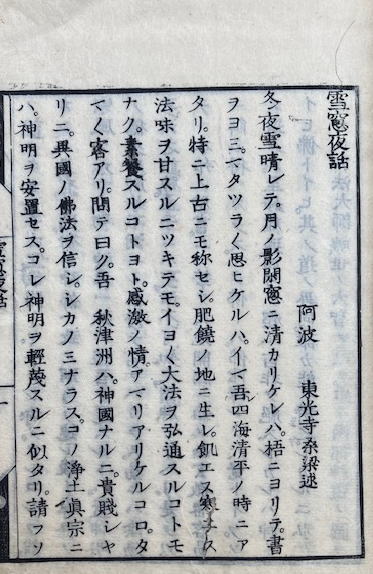 雪窓夜話
阿波　東光寺柔梁述
冬夜雪晴レテ。月ノ影閑窓ニ清カリケレハ。梧ニヨリテ。書
ヲヨミ。マタツラ〱思ヒケルハ。イマ吾四海清平ノ時ニア
タリ。特ニ上古ニモ称セシ。肥饒ノ地ニ生レ。飢エス寒エス
法味ヲ甘スルニツキテモ。イヨ〱大法ヲ弘通スルコトモ
ナク。素餐スルコトヨト。感激ノ情。アマリアリケルコロ。タ
マ〱客アリ。問テ曰ク。吾　秋津洲ハ。神國ナルニ。貴賤シヤ
リニ。異國ノ佛法ヲ信シ。シカノミナラス。コノ浄土眞宗ニ
ハ。神明ヲ安置セス。コレ神明ヲ輕蔑スルニ似タリ。請フソ